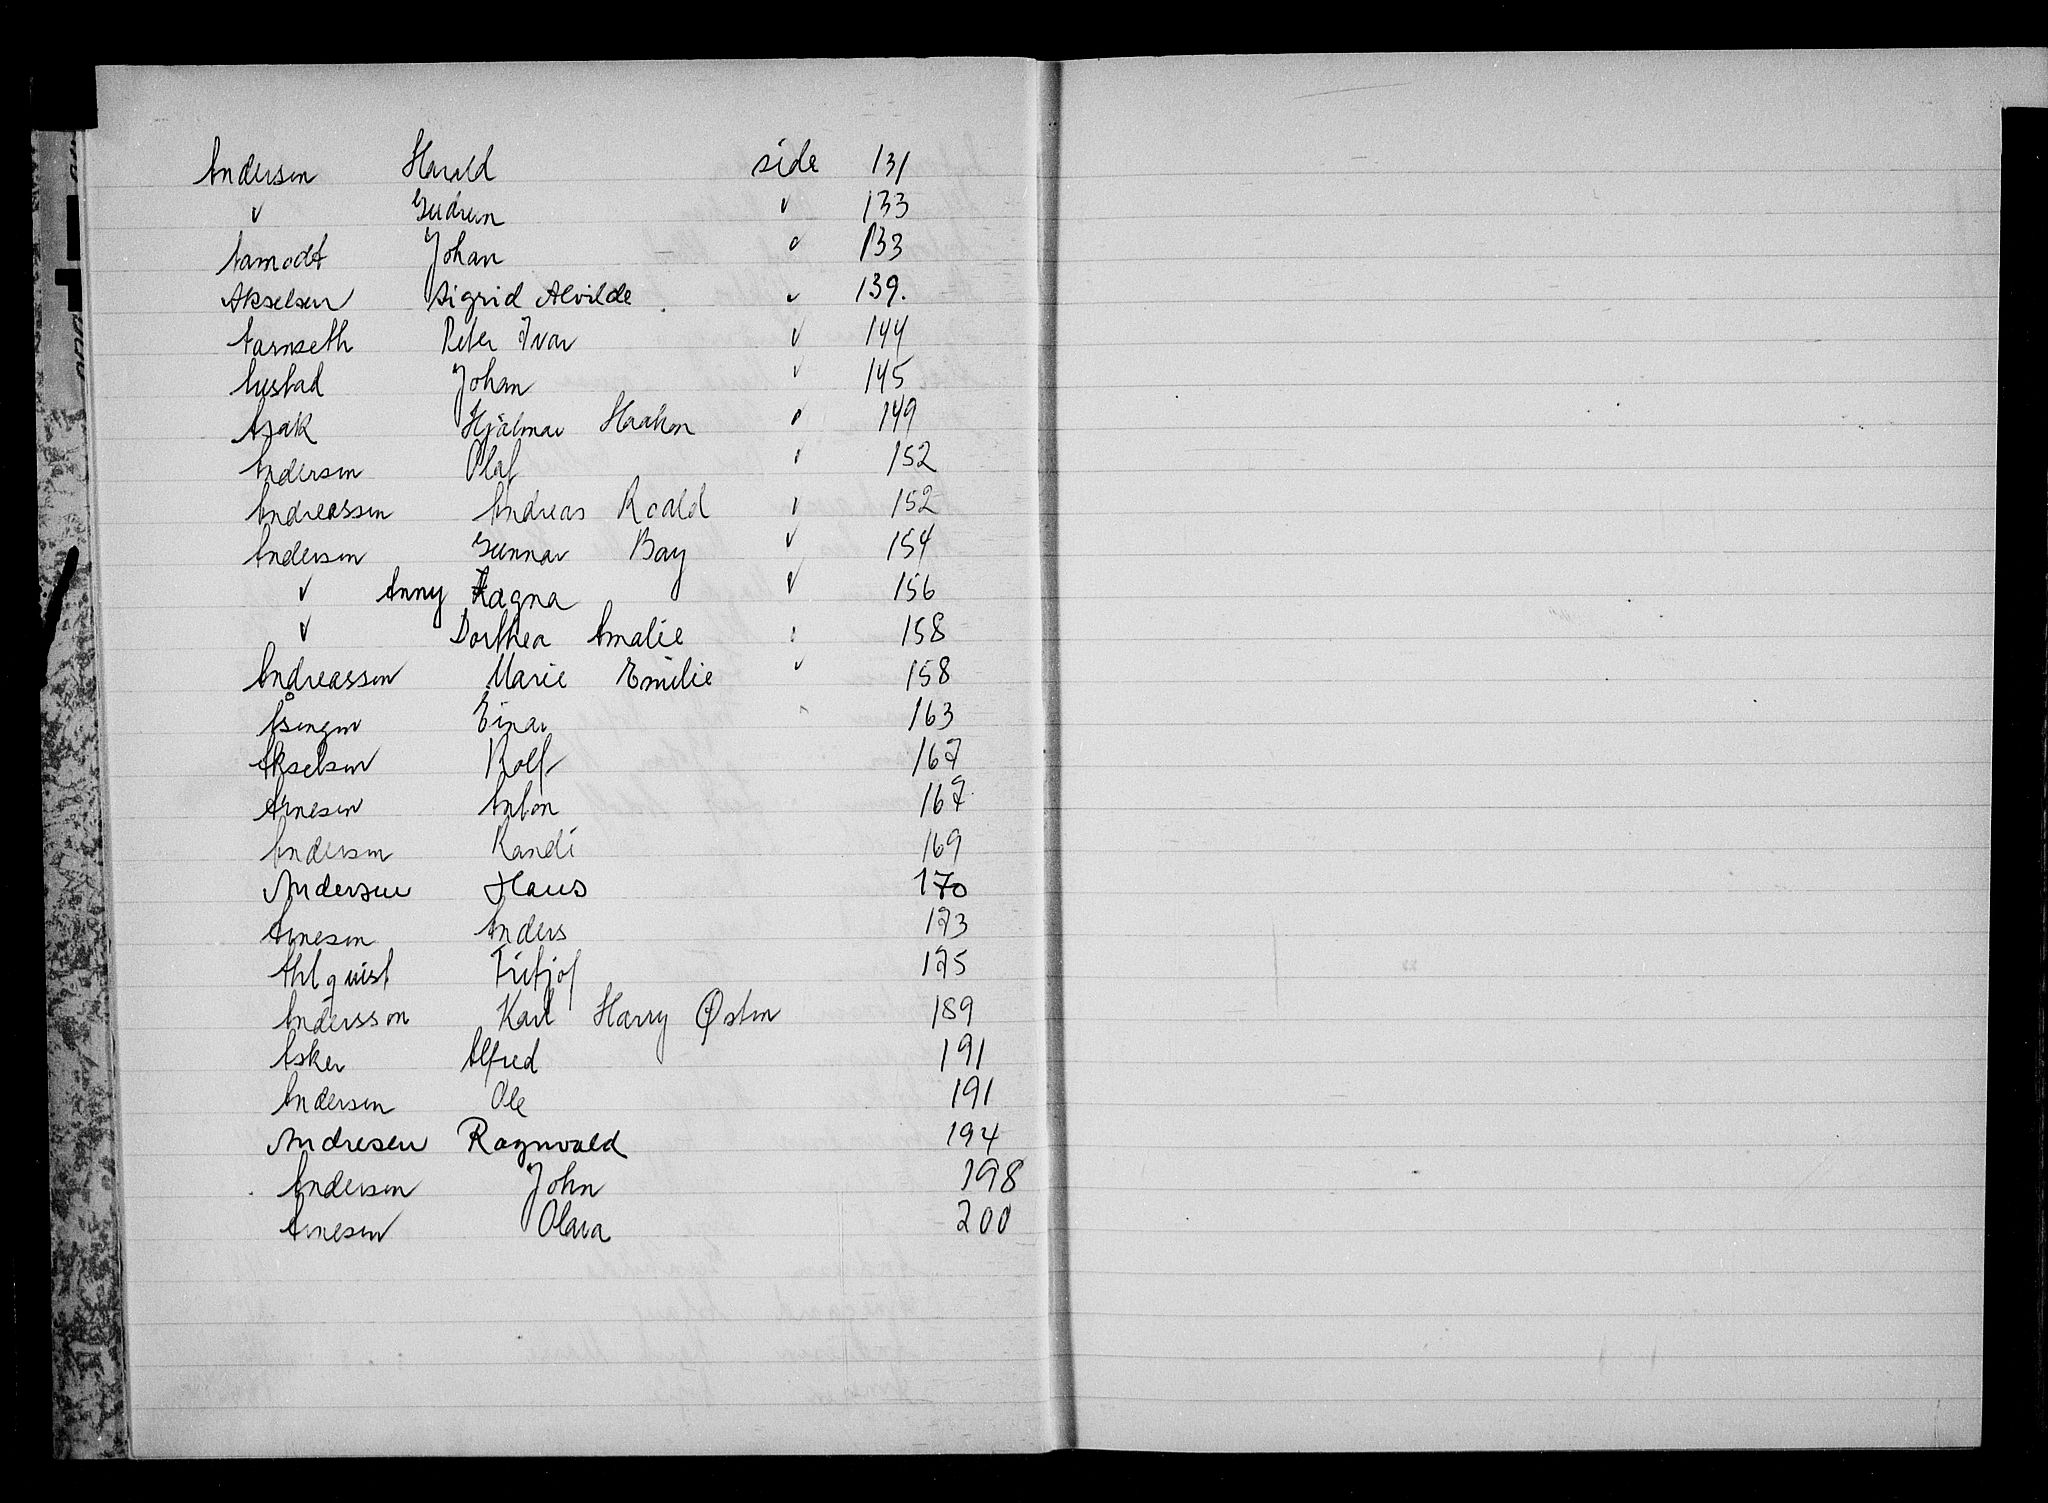 Andersen Harald side 131
" Gudrun " 133
Aamodt Johan " 133
Akselsen Sigrid Alvilde " 139.
Aarnseth Peter Ivar " 144
Austad Johan " 145
Asak Hjalmar Haakon " 149
Andersen Olaf " 152
Andreassen Andreas Roald " 152
Andersen Gunnar Bay " 154
" Anny Ragna " 156
" Dorthea Amalie " 158
Andreassen Marie Emilie " 158
Åsengen Einar " 163
Akselsen Rolf 167
Arnesen Anton 167
Andersen Randi 169
Andersen Hans 170
Arnesen Anders 173
Ahlquist Fritjof 175
Andersson Karl Harry Østen 189
Asker Alfred 191
Andersen Ole 191
Andresen Ragnvald 194
Andersen John 198
Arnesen Olava 200